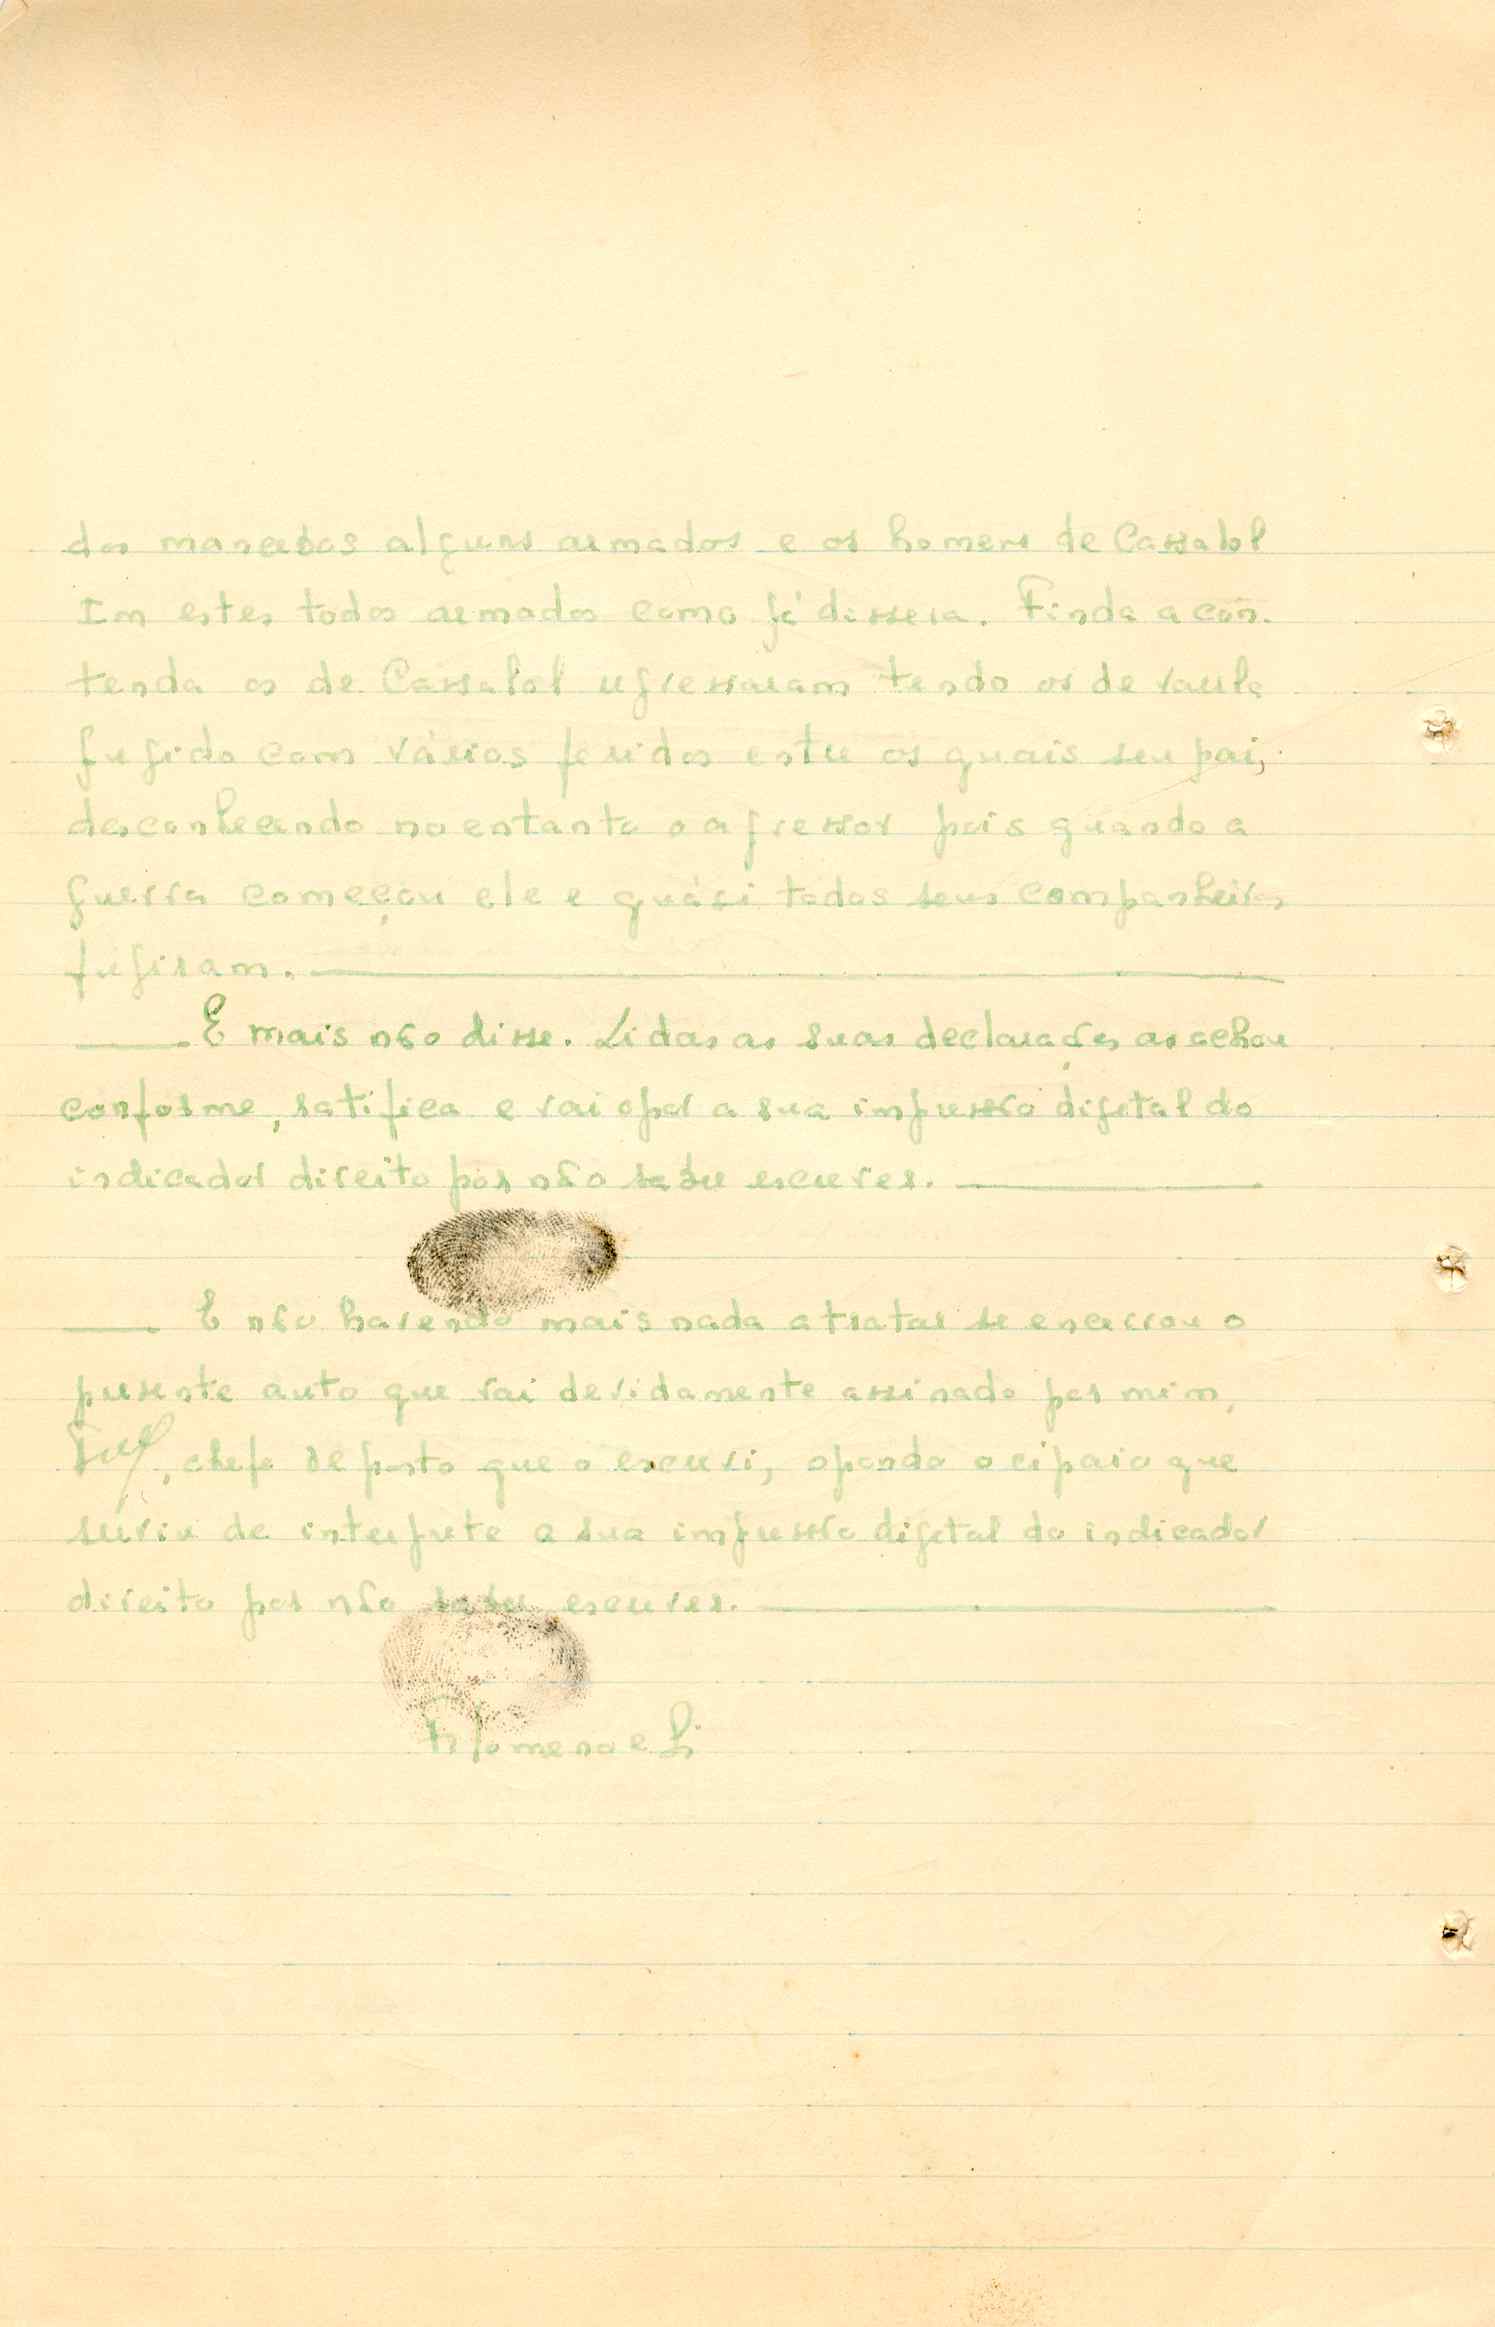 dos mancebos alguns armados e os homens de Cassalol
Im estes todos armados como já dissera. Finda a con-
tenda os de Cassalol regressaram tendo os de Varela
fugido com vários feridos entre os quais seu pai,
desconhecendo no entanto o agressor pois quando a
guerra começou ele e quási todos seus companheiros
fugiram.
E mais não disse. Lidas as suas declarações as achou
conforme, ratifica e vai opor a sua impressão digital do
indicador direito por não saber escrever.
E não havendo mais nada a tratar se encerrou o
presente auto que vai devidamente assinado por mim,
, chefe de posto que o escrevi, opondo o cipaio que
serviu de interprete a sua impressão digital do indicador
direito por não saber escrever.